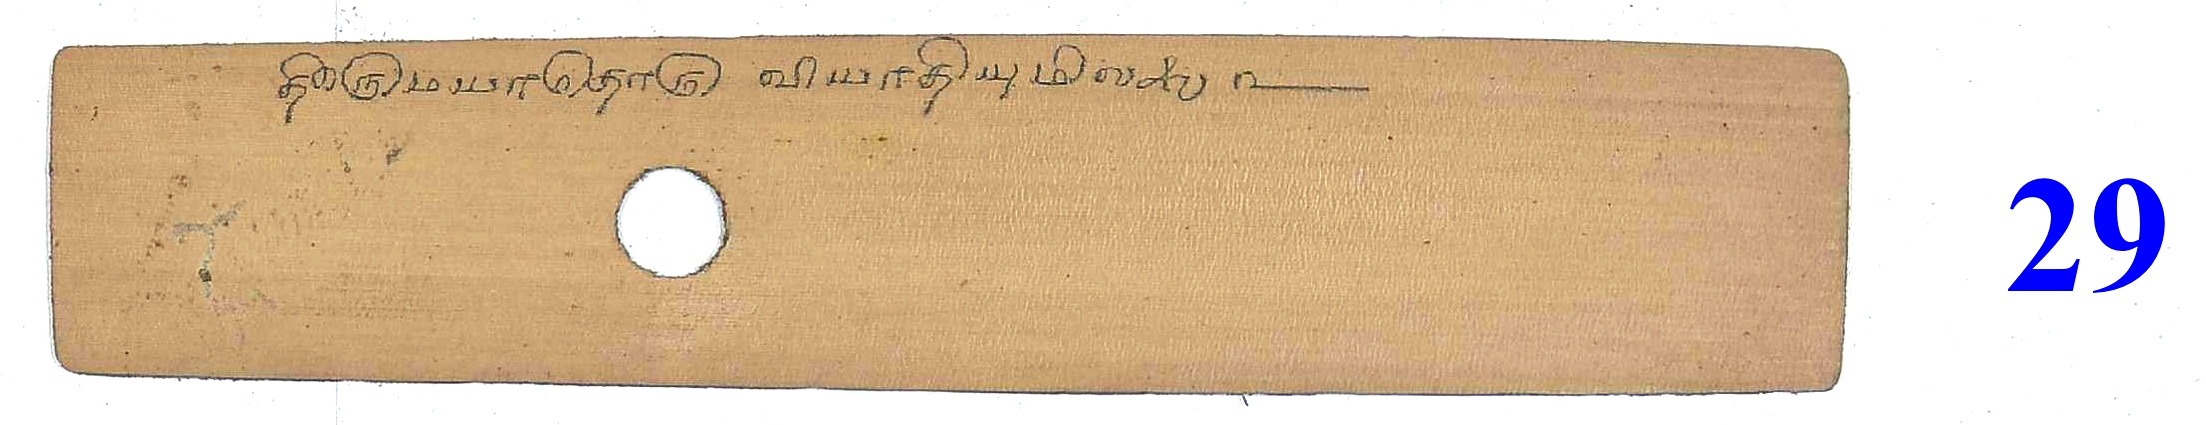 தீருமயாதொரு வியாதியுமிலலை உ
29